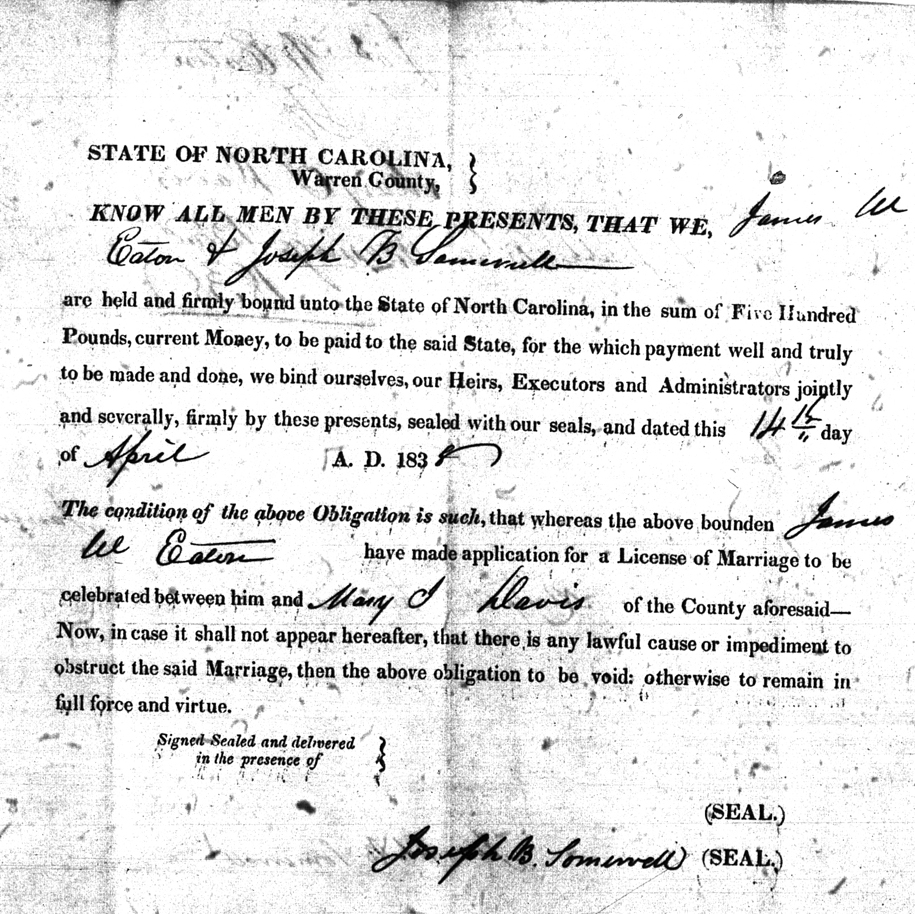 STATE OF NORTH CAROLINA,
Warren County,
KNOW ALL MEN BY THESE PRESENTS, THAT WE, James W
Eaton & Joseph B Somervell
are held and firmly bound unto the State of North Carolina, in the sum of Five Hundred
Pounds, current Money, to be paid to the said State, for the which payment well and truly
to be made and done, we bind ourselves, our Heirs, Executors and Administrators jointly
and severally, firmly by these presents, sealed with our seals, and dated this 14th day
of April A. D. 183
The condition of the above Obligation is such, that whereas the above bounden James
W Eaton have made application for a License of Marriage to be
celebrated between him and Mary I Davis of the County aforesaid—
Now, in case it shall not appear hereafter, that there is any lawful cause or impediment to
obstruct the said Marriage, then the above obligation to be void: otherwise to remain in
full force and virtue.
Signed Sealed and delivered
in the presence of
(SEAL.)
Joseph B. Somervell (SEAL.)